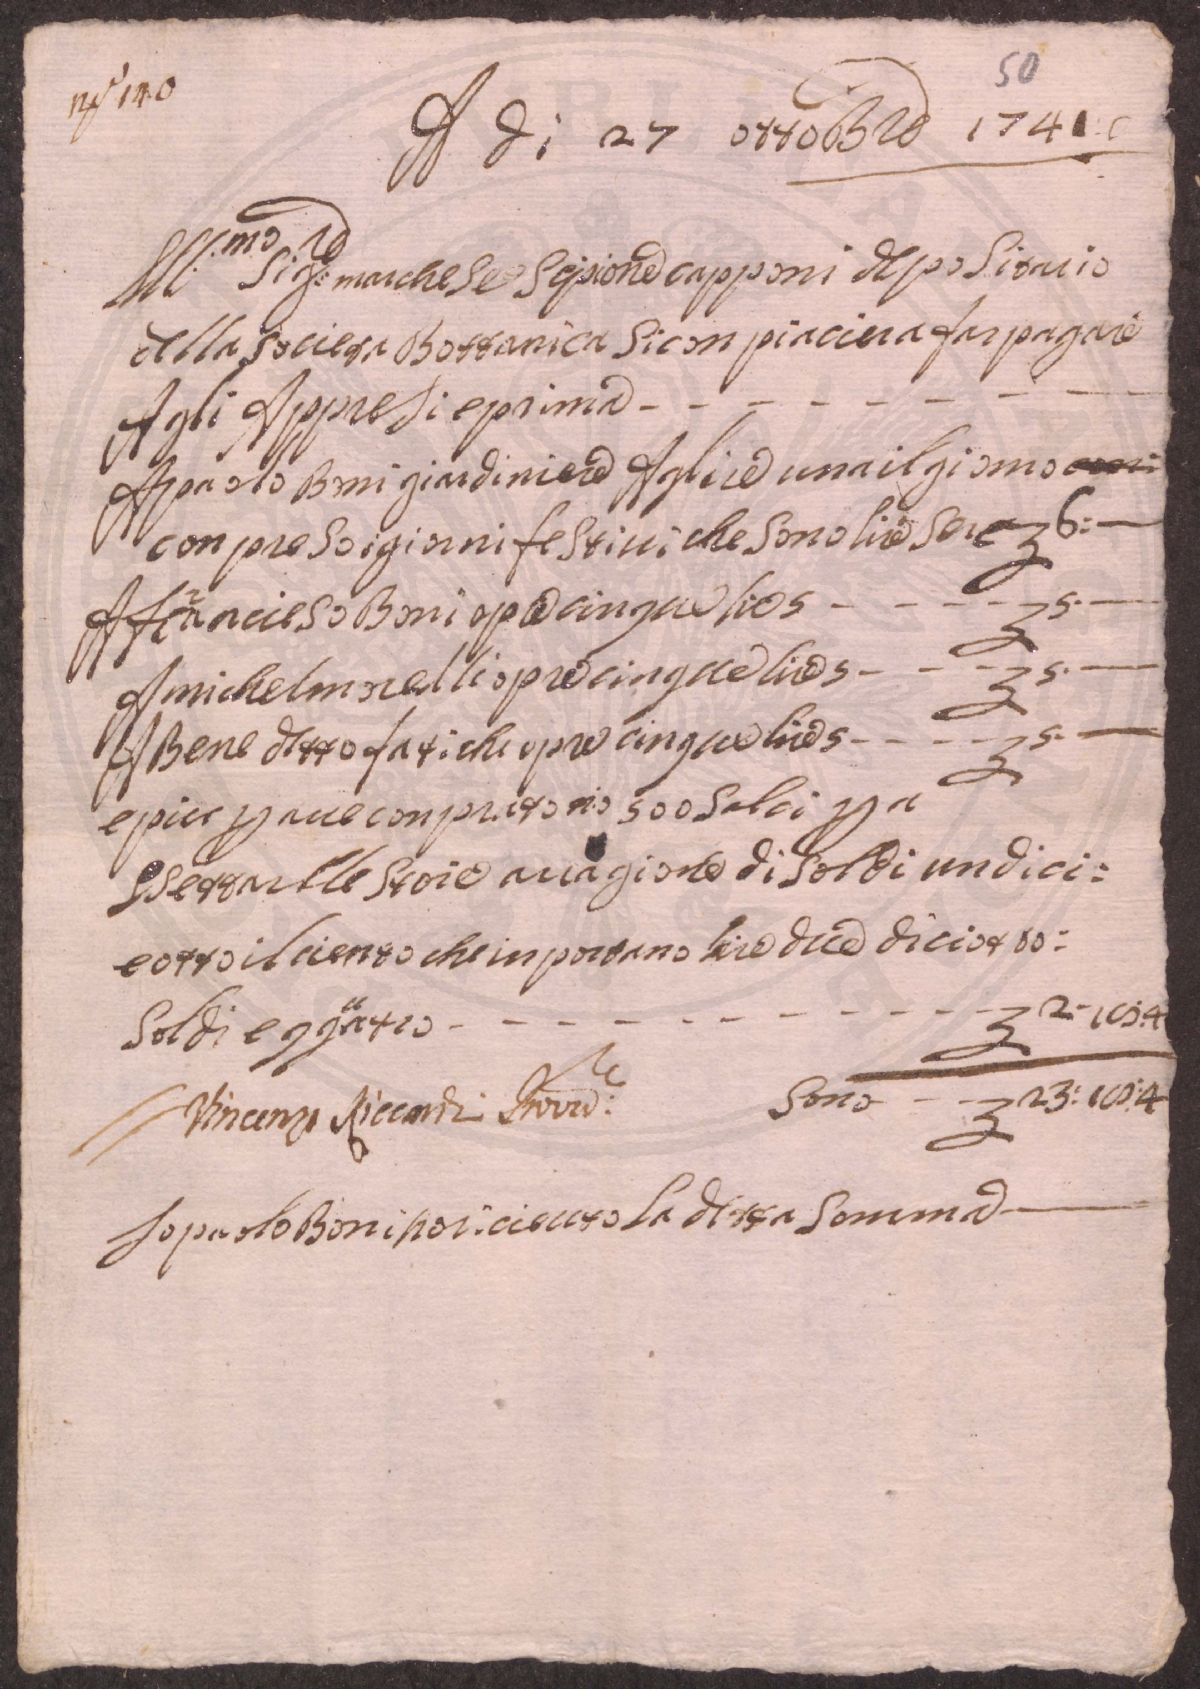 n.° 140
50
A di 27 ottobre 1741
Ill.mo Sig.re marchese Scipione capponi depositario
della Societa Bottanica Si conpiacera far pagare
Agli Appresi e prima - - - - - - - -
A paolo Boni giardiniere A lire una il giorno
conpreso i giorni festivi che sono lire sei 6:—
A francieso Boni opre cinque lire 5 - - - - 5:—
A michel morelli opre cinque lire 5 - - - 5:—
A Bene detto fatichi opre cinque lire 5 - - - - 5:—
e piu p avere conprato no 500 Salci p
Asettar lle Stoie a ragione di Soldi undici:
e otto il ciento che inportano lire due diciotto:
Soldi e qquatro - - - - - - - - - - 2-18:4
Vincenzo Riccardi Provre: Sono - - - 23:18:4
Io paolo Boni ho ricieuto La detta Somma